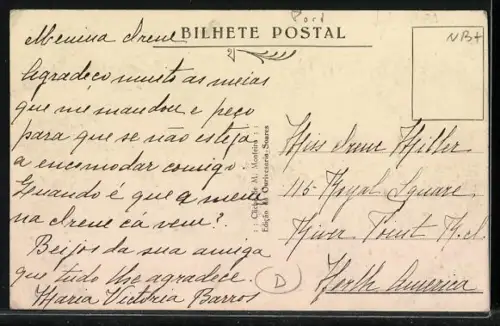 Port
NB+
BILHETE POSTAL
Menina Irene
Agradeço muito as meias
que me mandou e peço
para que se não esteja
a encomodar comigo.
Quando é que a meni
na Irene cá vem?
Beijos da sua amiga
que tudo lhe agradece.
Maria Victória Barros
D
Edição M. Ourivesaria-Soares
Miss Irene Miller
115 Royal Square
River Point R.I.
North America